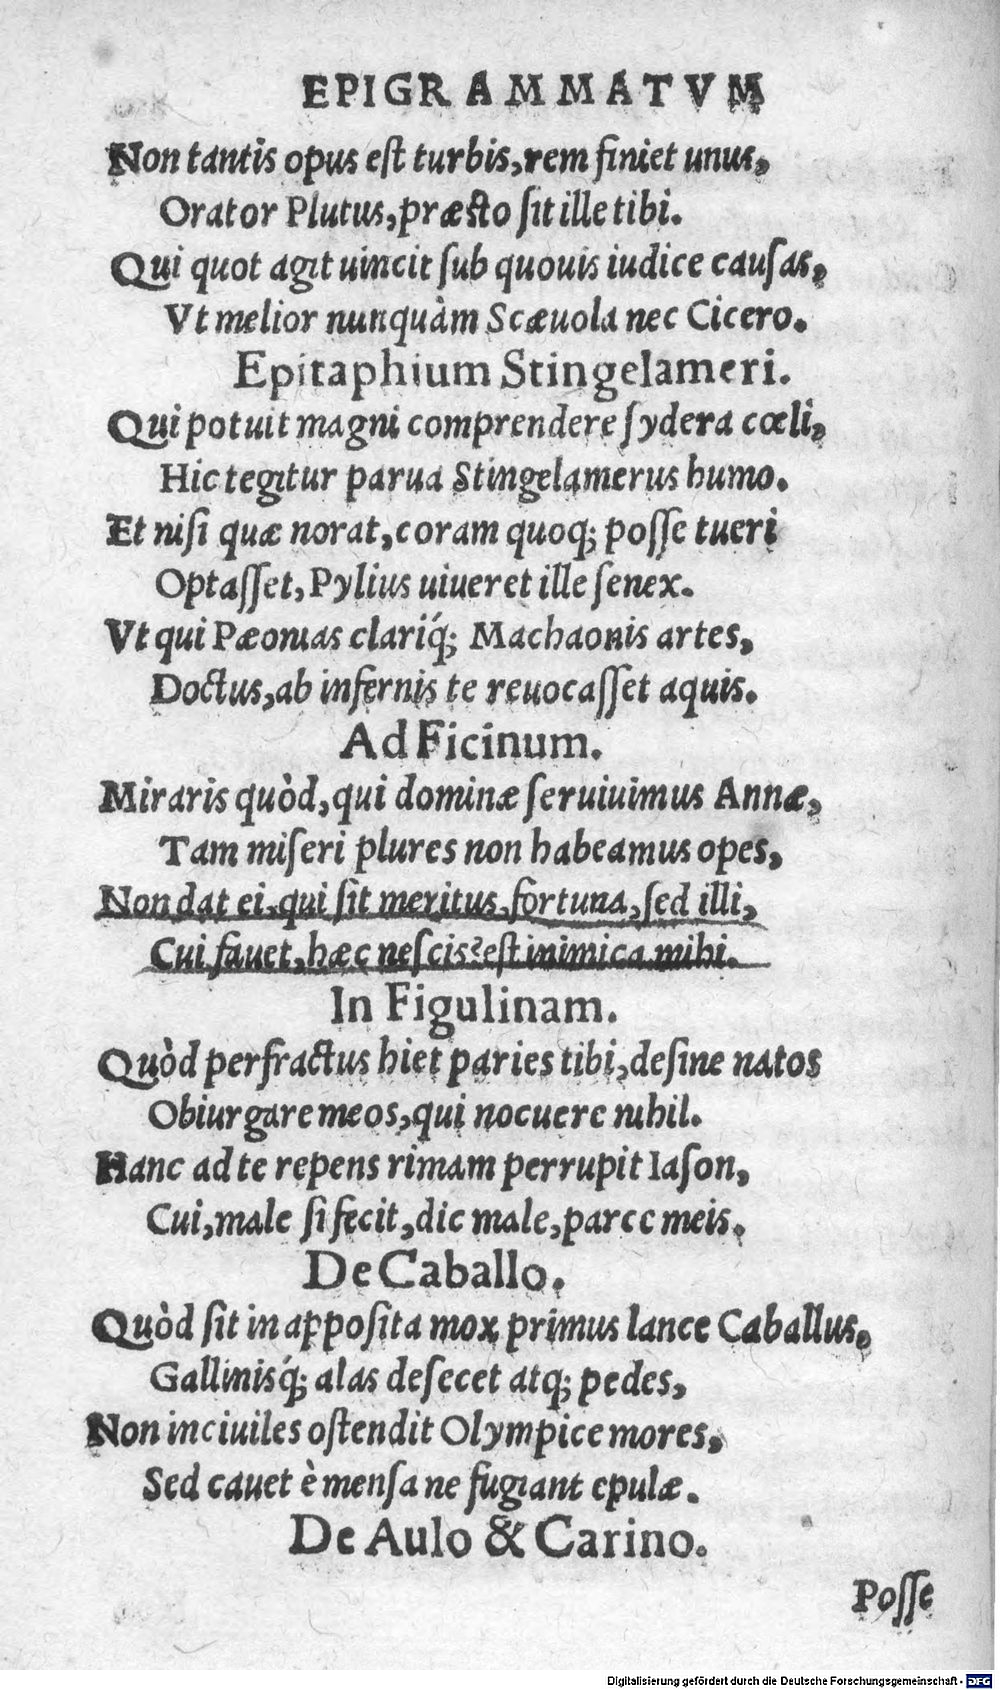 EPIGRAMMATVM
Non tantis opus eſt turbis, rem finiet unus,
Orator Plutus, præſto ſit ille tibi.
Qui quot agit uincit ſub quouis iudice cauſas,
Vt melior nunquàm Scæuola nec Cicero.
Epitaphium Stingelameri.
Qui potuit magni comprendere ſydera cœli,
Hic tegitur parua Stingelamerus humo.
Et niſi quæ norat, coram quoq; poſſe tueri
Optaſſet, Pylius uiueret ille ſenex.
Vt qui Pæonias clariq́; Machaonis artes,
Doctus, ab infernis te reuocaſſet aquis.
Ad Ficinum.
Miraris quòd, qui dominæ ſeruiuimus Annæ,
Tam miſeri plures non habeamus opes,
Non dat ei, qui ſit meritus, fortuna, ſed illi,
Cui fauet, hæc neſcis? eſt inimica mihi.
In Figulinam.
Quòd perfractus hiet paries tibi, deſine natos
Obiurgare meos, qui nocuere nihil.
Hanc ad te repens rimam perrupit Iaſon,
Cui, male ſi fecit, dic male, parce meis.
De Caballo.
Quòd ſit in appoſita mox primus lance Caballus,
Galliniſq́; alas deſecet atq; pedes,
Non inciuiles oſtendit Olympice mores,
Sed cauet è menſa ne fugiant epulæ.
De Aulo & Carino.
Poſſe
Digitalisierung gefördert durch die Deutsche Forschungsgemeinschaft - DFG